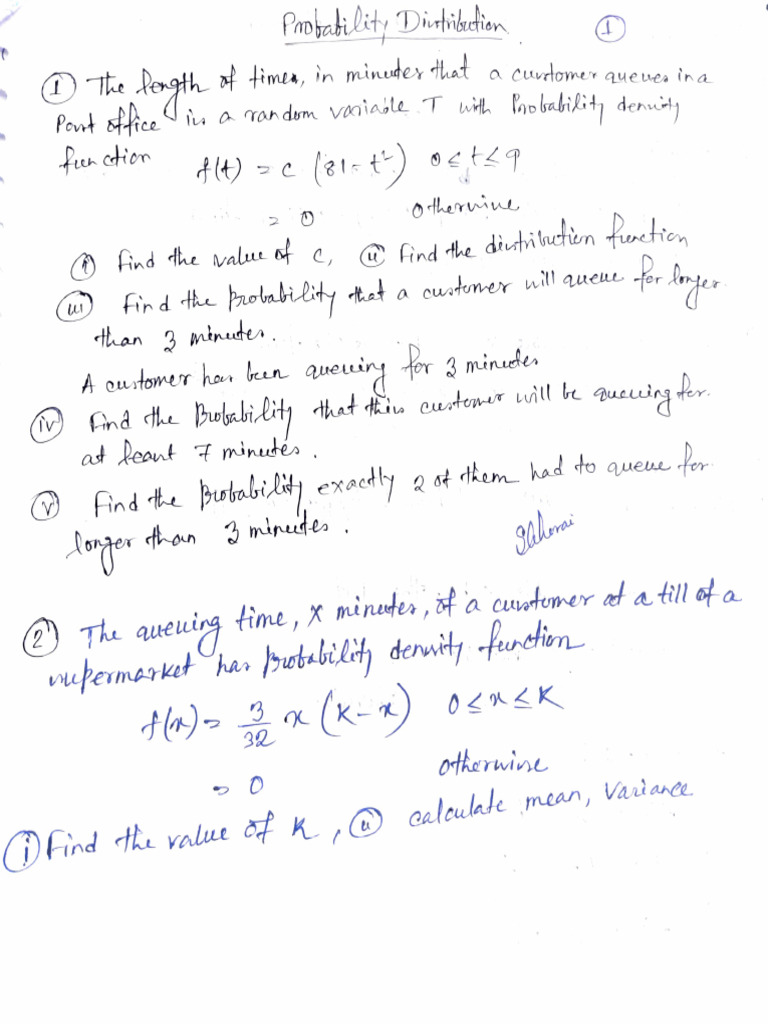 Probability Distribution 1
① The length of times, in minutes that a customer queues in a
Post office is a random variable T with Probability density
function f(t) = c (81 - t²) 0 ≤ t ≤ 9
= 0 otherwise
(i) find the value of c, (ii) find the distribution function
(iii) find the Probability that a customer will queue for longer
than 3 minutes.
A customer has been queuing for 3 minutes
(iv) find the Probability that this customer will be queuing for
at least 7 minutes.
(v) find the Probability exactly 2 of them had to queue for
longer than 3 minutes.
② The queuing time, x minutes, of a customer at a till of a
supermarket has probability density function
f(x) = 3/32 x (K - x) 0 ≤ x ≤ K
= 0 otherwise
(i) Find the value of K, (ii) calculate mean, variance